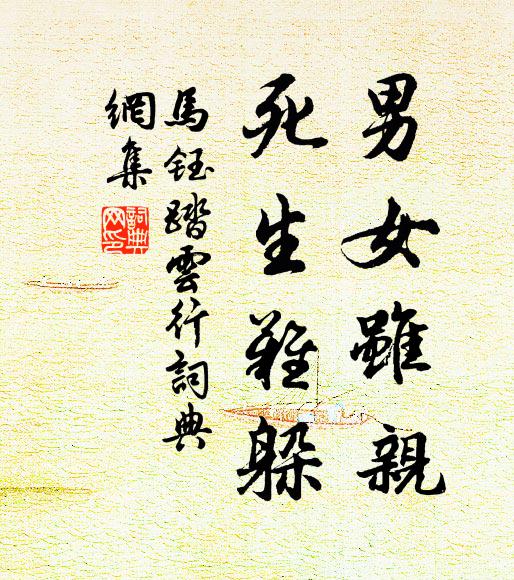 男女雖親
死生難躲
馬鈺踏雲行詞典
網集
詞典
网印